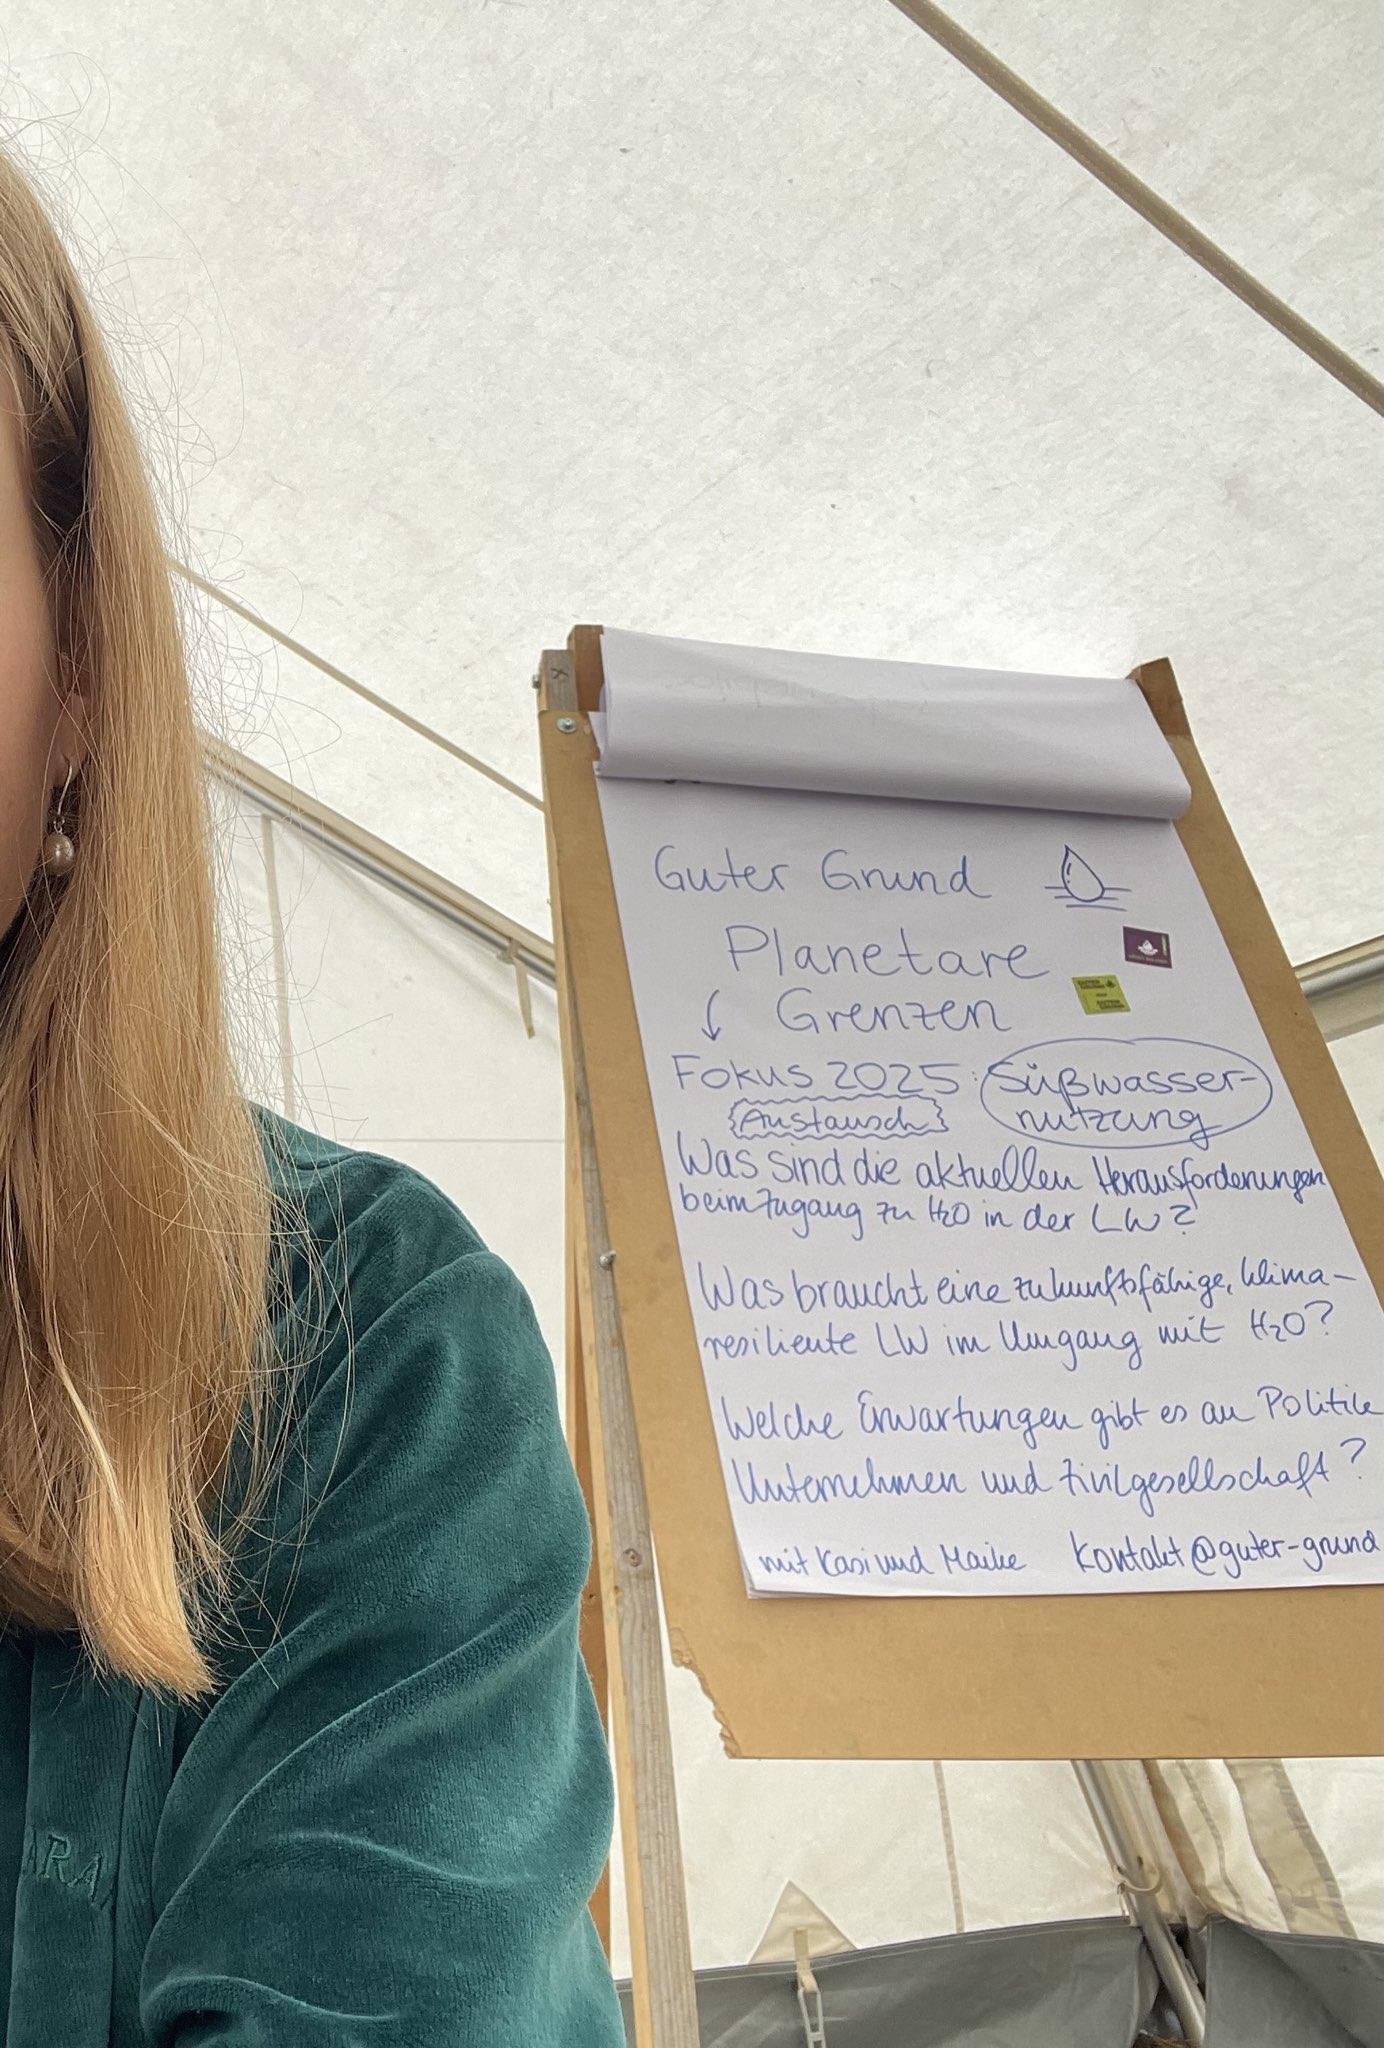 Guter Grund
Planetare
Grenzen
Fokus 2025: Süßwasser-
nutzung
Austausch
Was sind die aktuellen Herausforderungen
beim Zugang zu H2O in der LW?
Was braucht eine zukunftsfähige, klima-
resiliente LW im Umgang mit H2O?
Welche Erwartungen gibt es an Politik
Unternehmen und Zivilgesellschaft?
mit Kasi und Maike kontakt@guter-grund
ARA